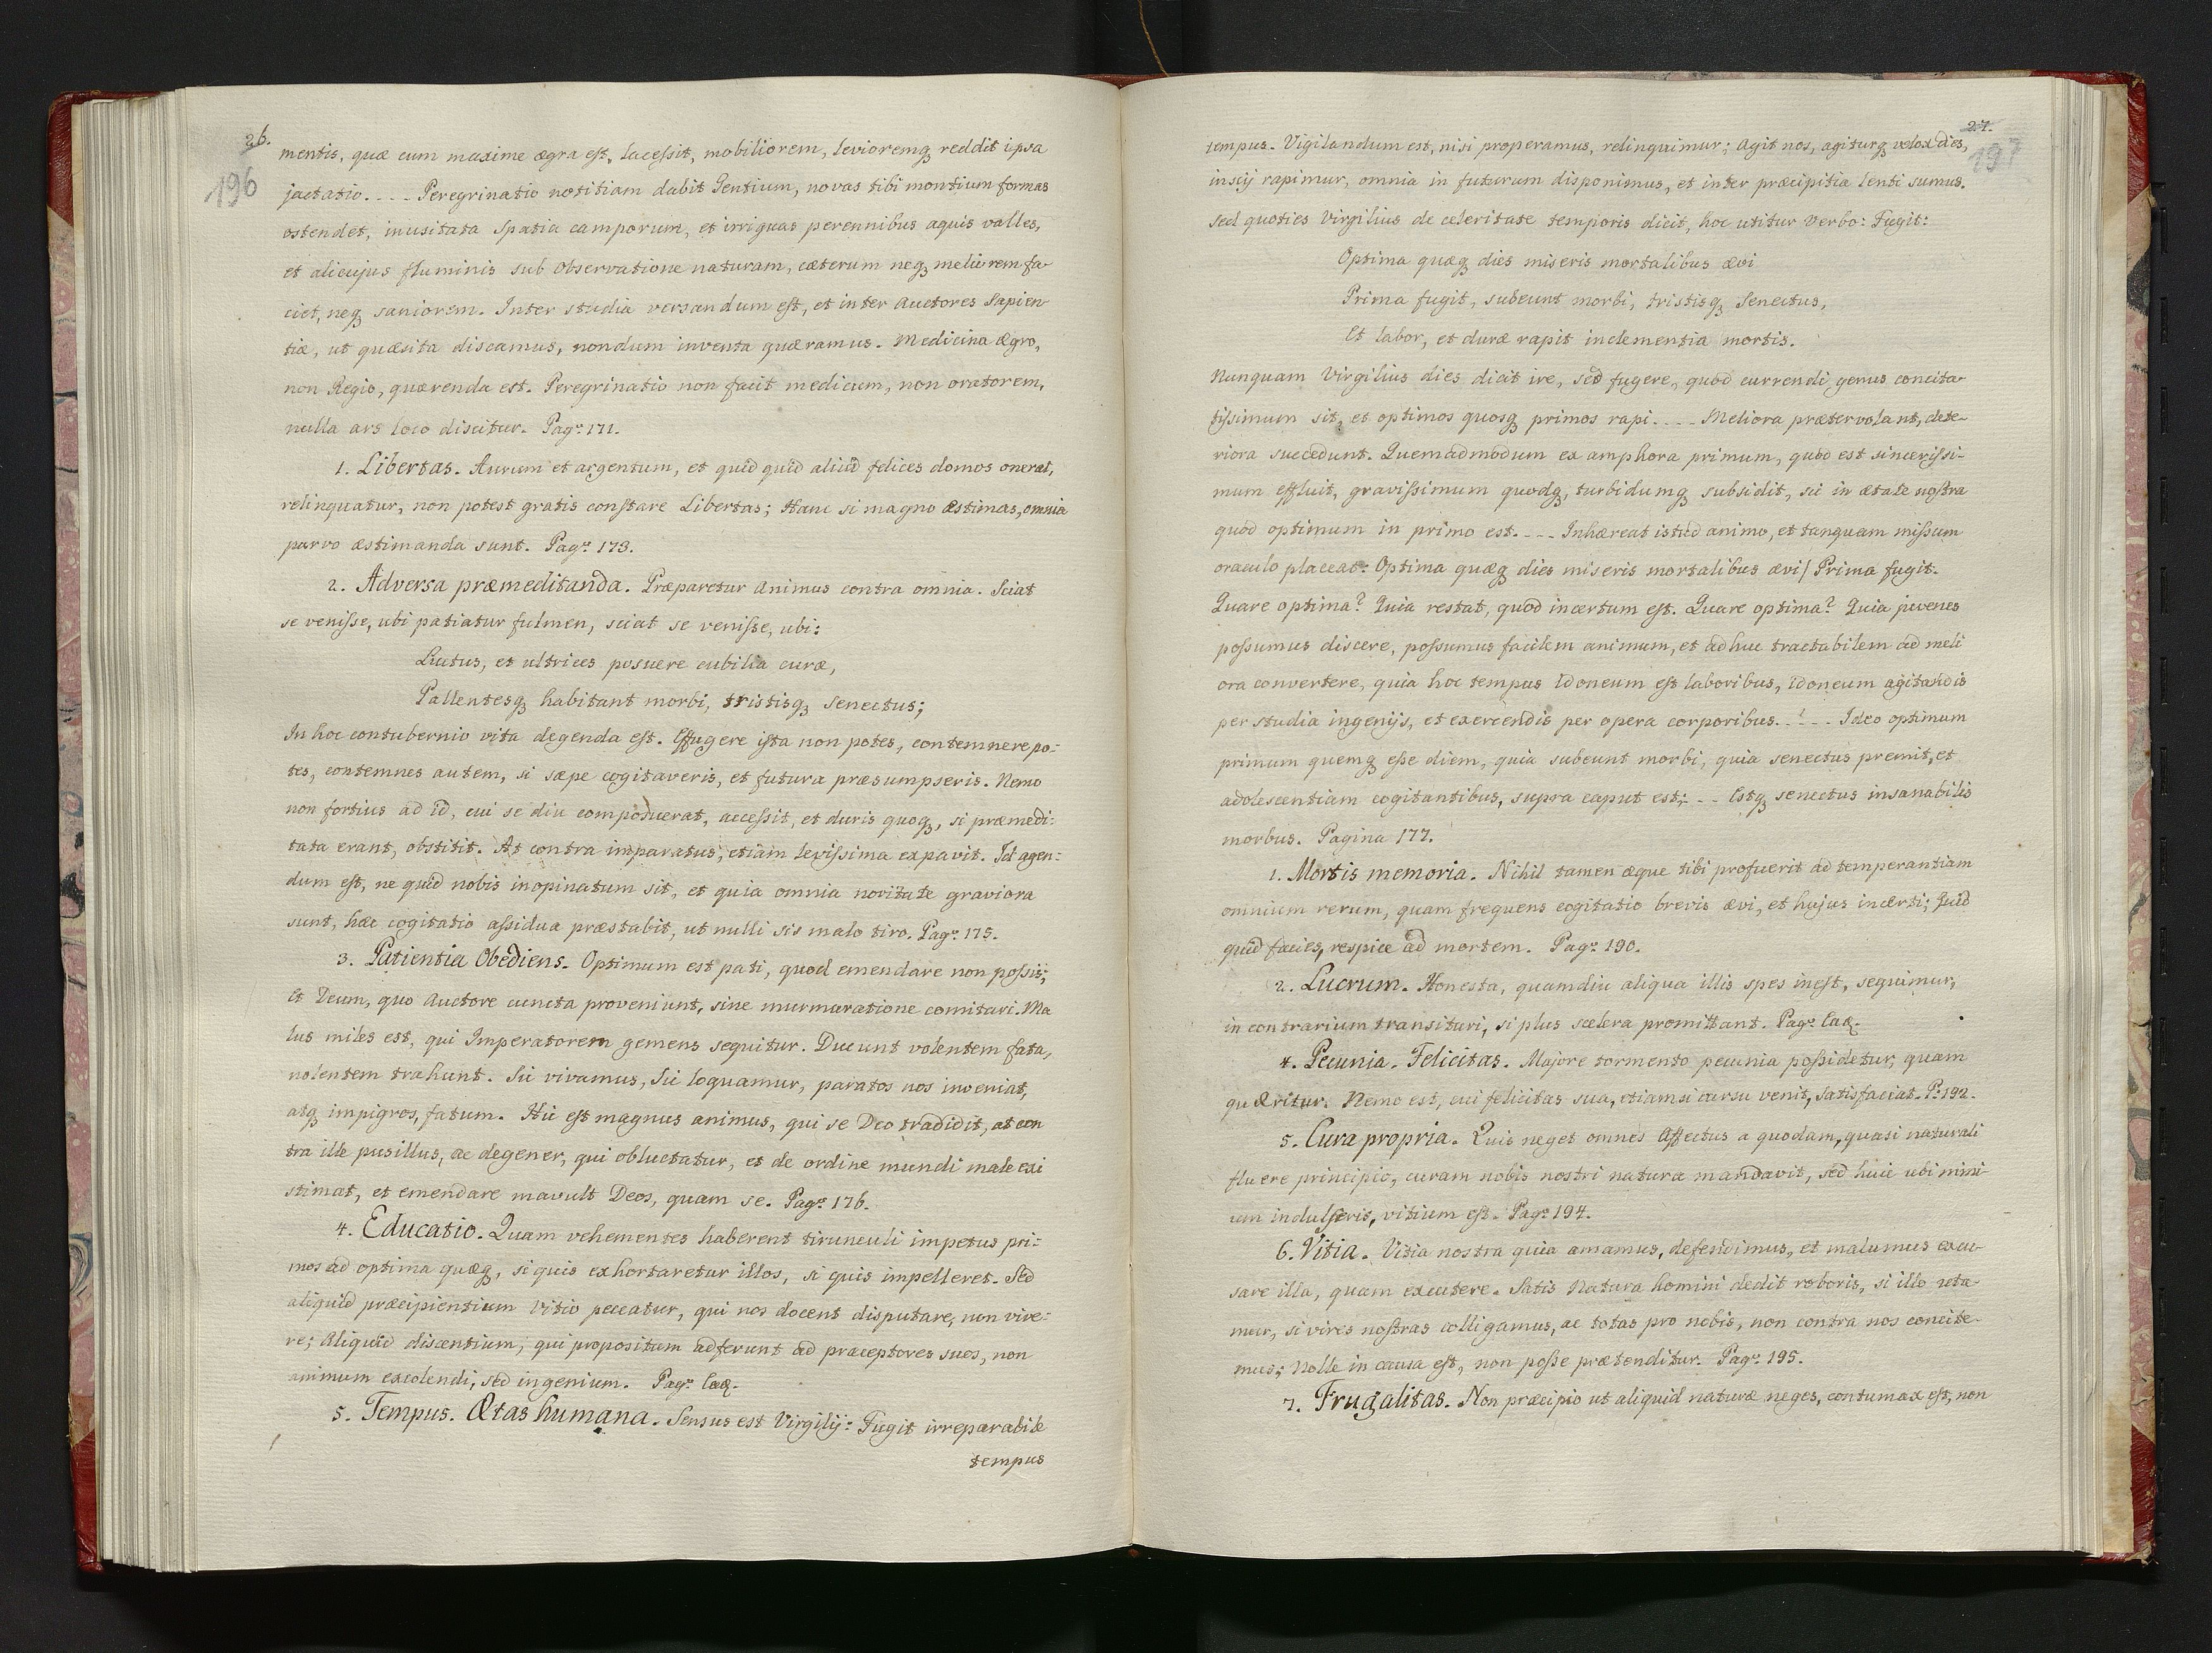 26.
196
mentis, quæ cum maxime ægra est, lacessit, mobiliorem, levioremq₃ reddit ipsa
jactatio. - - - Peregrinatio notitiam dabit Gentium, novas tibi montium formas
ostendet, inusitata Spatia camporum, et irriguas perennibus aquis valles,
et alicujus fluminis sub Observatione naturam, cæterum neq₃ meliorem fa-
ciet, neq₃ saniorem. Inter studia versandum est, et inter Auctores Sapien-
tiæ, ut quæsita discamus, nondum inventa quæramus. Medicina Ægro,
non Regio, quærenda est. Peregrinatio non facit medicum, non oratorem,
nulla ars loco discitur. Pagᵃ 171.
1. Libertas. Aurum et argentum, et quid quid aliud felices domos onerat,
relinquatur, non potest gratis constare Libertas; Hanc si magno Æstimas, omnia
parvo æstimanda sunt. Pagᵃ 173.
2. Adversa præmeditanda. Præparetur Animus contra omnia. Sciat
se venisse, ubi patiatur fulmen, sciat se venisse, ubi:
Luctus, et ultrices posuere cubilia curæ,
Pallentesq₃ habitant morbi, tristisq₃ senectus;
In hoc contubernio vita degenda est. Effugere ista non potes, contemnere po-
tes, contemnes autem, si sæpe cogitaveris, et futura præsumpseris. Nemo
non fortius ad id, cui se diu composuerat, accessit, et duris quoq₃, si præmedi-
tata erant, obstitit. At contra imparatus, etiam levissima expavit. Id agen-
dum est, ne quid nobis inopinatum sit, et quia omnia novitate graviora
sunt, hæc cogitatio assidua præstabit, ut nulli sis malo tiro. Pagᵃ 175.
3. Patientia Obediens. Optimum est pati, quod emendare non possis;
Et Deum, quo Auctore cuncta proveniunt, sine murmuratione comitari. Ma
lus miles est, qui Imperatorem gemens sequitur. Ducunt volentem fata,
nolentem trahunt. Sic vivamus, Sic loquamur, paratos nos inveniat,
atq₃ impigros, fatum. Hic est magnus animus, qui se Deo tradidit, at con
tra ille pusillus, ac degener, qui obluctatur, et de ordine mundi male exi
stimat, et emendare mavult Deos, quam se. Pagᵃ 176.
4. Educatio. Quam vehementes haberent tirunculi impetus pri-
mos ad optima quæq₃, si quis exhortaretur illos, si quis impelleret. Sed
aliquid præcipientium Vitio peccatur, qui nos docent disputare, non vive-
re; Aliquid discentium, qui propositum adferunt ad præceptores suos, non
animum excolendi, sed ingenium. Pagᵃ Eaq.
5. Tempus. Ætas humana. Sensus est Virgilij: Fugit irreparabile
tempus
27.
197
tempus. Vigilandum est, nisi properamus, relinquimur; Agit nos, agiturq₃ velox dies,
inscij rapimur, omnia in futurum disponimus, et inter præcipitia lenti sumus.
sed quoties Virgilius de celeritate temporis dicit, hoc utitur Verbo: Fugit:
Optima quæq₃ dies miseris mortalibus ævi
Prima fugit, subeunt morbi, tristisq₃ Senectus,
Et labor, et duræ rapit inclementia mortis.
Nunquam Virgilius dies dicit ire, sed fugere, quod currendi genus concita-
tissimum sit, et optimos quosq₃ primos rapi. - - - Meliora prætervolant, dete-
riora succedunt. Quemadmodum ex amphora primum, quod est sincerissi-
mum effluit, gravissimum quodq₃, turbidumq₃ subsidit, sic in ætate nostra
quod optimum in primo est. - - - Inhæreat istud animo, et tanquam missum
oraculo placeat: Optima quæq₃ dies miseris mortalibus ævi / Prima fugit.
Quare optima? Quia restat, quod incertum est. Quare optima? Quia juvenes
possumus discere, possumus facilem animum, et adhuc tractabilem ad meli
ora convertere, quia hoc tempus Idoneum est laboribus, Idoneum agitandis
per studia ingenijs, et exercendis per opera corporibus. - - - Ideo optimum
primum quemq₃ esse diem, quia subeunt morbi, quia senectus premit, et
adolescentiam cogitantibus, supra caput est; - - Estq₃ senectus insanabilis
morbus. Pagina 177.
1. Mortis memoria. Nihil tamen æque tibi profuerit ad temperantiam
omnium rerum, quam frequens cogitatio brevis ævi, et hujus incerti; Quid
quid facies, respice ad mortem. Pagᵃ 190.
2. Lucrum. Honesta, quamdiu aliqua illis spes inest, sequimur,
in contrarium transituri, si plus scelera promittant. Pagᵃ Eaq.
4. Pecunia. Felicitas. Majore tormento pecunia possidetur, quam
quÆritur. Nemo est, cui felicitas sua, etiamsi cursu venit, Satisfaciat. Pᵃ 192.
5. Cura propria. Quis neget omnes Affectus a quodam, quasi naturali
fluere principio, curam nobis nostri natura mandavit, sed huic ubi nimi-
um indulseris, vitium est. Pagᵃ 194.
6. Vitia. Vitia nostra quia amamus, defendimus, et malumus excu-
sare illa, quam excutere. Satis Natura homini dedit roboris, si illo uta-
mur, si vires nostras colligamus, ac totas pro nobis, non contra nos concite-
mus; Nolle in causa est, non posse prætenditur. Pagᵃ 195.
7. Frugalitas. Non præcipio ut aliquid naturæ neges, contumax est, non